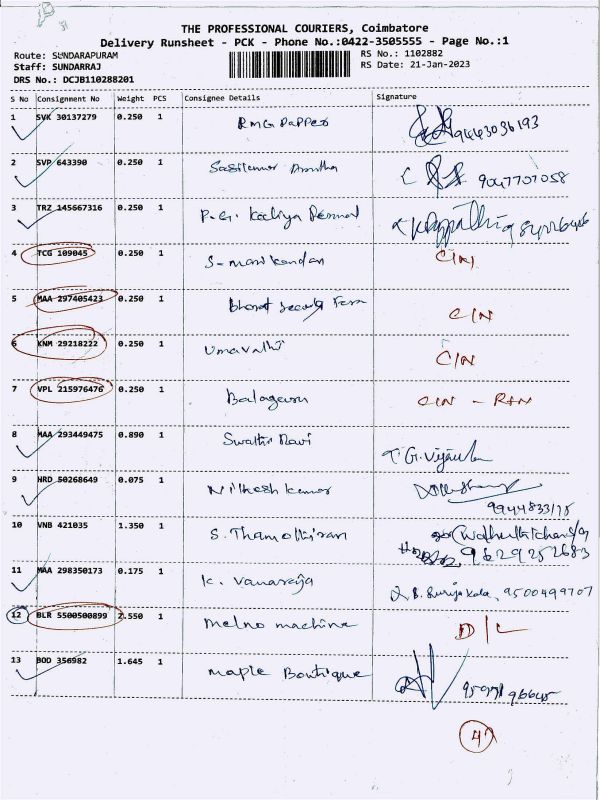 THE PROFESSIONAL COURIERS, Coimbatore
Delivery Runsheet - PCK - Phone No.:0422-3505555 - Page No.:1
Route: SUNDARAPURAM RS No.: 1102882
Staff: SUNDARRAJ RS Date: 21-Jan-2023
DRS No.: DCJB110288201
S No Consignment No Weight PCS Consignee Details Signature
1 SVK 30137279 0.250 1 RMG Papper 9443036193
2 SVP 643390 0.250 1 9047707058
3 TRZ 145667316 0.250 1 P.G.
4 TCG 109045 0.250 1 S-manikandan C/N
5 MAA 297405423 0.250 1 Bharat C/N
6 KNM 29218222 0.250 1 Umavathi C/N
7 VPL 215976476 0.250 1 C/N - RTN
8 MAA 293449475 0.890 1 Swathi T.G.
9 HRD 50268649 0.075 1 Nithesh kumar
10 VNB 421035 1.350 1 S. 9629252683
11 MAA 298350173 0.175 1 K. Vanaraja 9500499707
12 BLR 5500500899 2.550 1 melno machine D/L
13 BOD 356982 1.645 1 maple Boutique
4